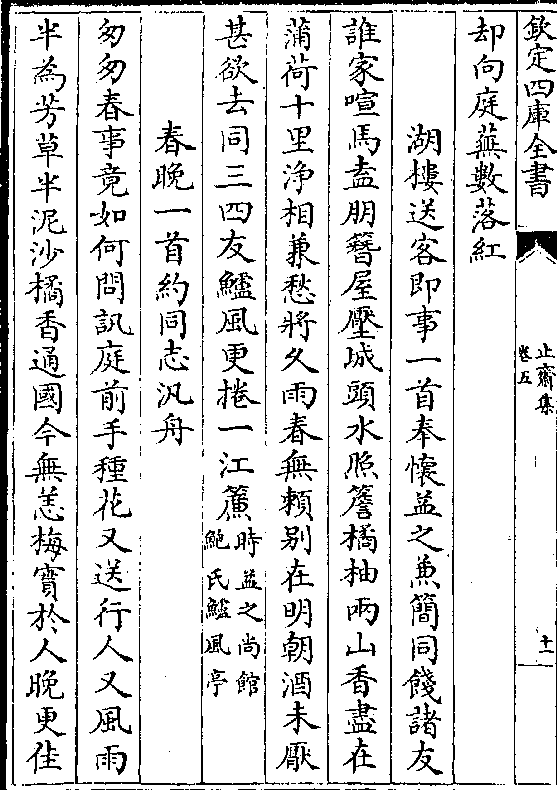 欽定四庫全書
止齋集
卷五
十一
却向庭蕪數落紅
湖樓送客即事一首奉懷益之兼簡同餞諸友
誰家喧馬盍朋簪屋壓城頭水照簷橘柚兩山香盡在
蒲荷十里淨相兼愁將久雨春無賴别在明朝酒未厭
甚欲去同三四友鱸風更捲一江簾時益之尚館
鮑氏鱸風亭
春晚一首約同志汎舟
匆匆春事竟如何問訊庭前手種花又送行人又風雨
半為芳草半泥沙橘香通國今無恙梅實於人晚更佳